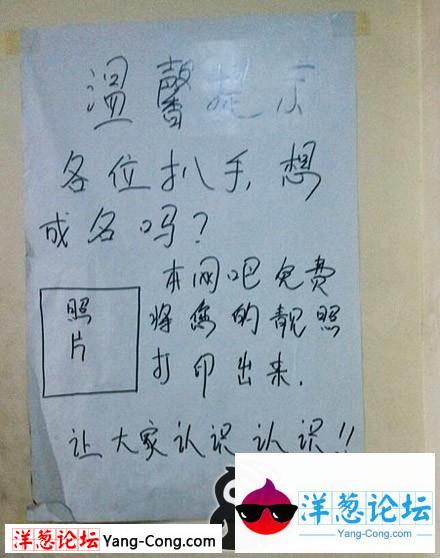 温馨提示
各位扒手,想
成名吗?
本网吧免费
将您的靓照
打印出来.
照
片
让大家认识认识!!
洋葱论坛
Yang-Cong.com
洋葱论坛 Yang-Cong.com